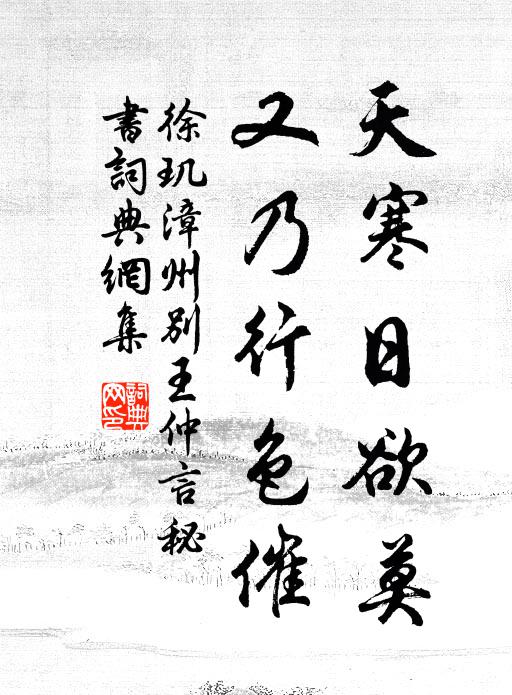 天寒日欲莫
又乃行色催
徐玑漳州别王仲言秘
書詞典網集
詞典網印